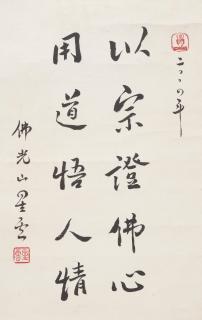 二〇〇四年
以宗證佛心
用道悟人情
佛光山星雲